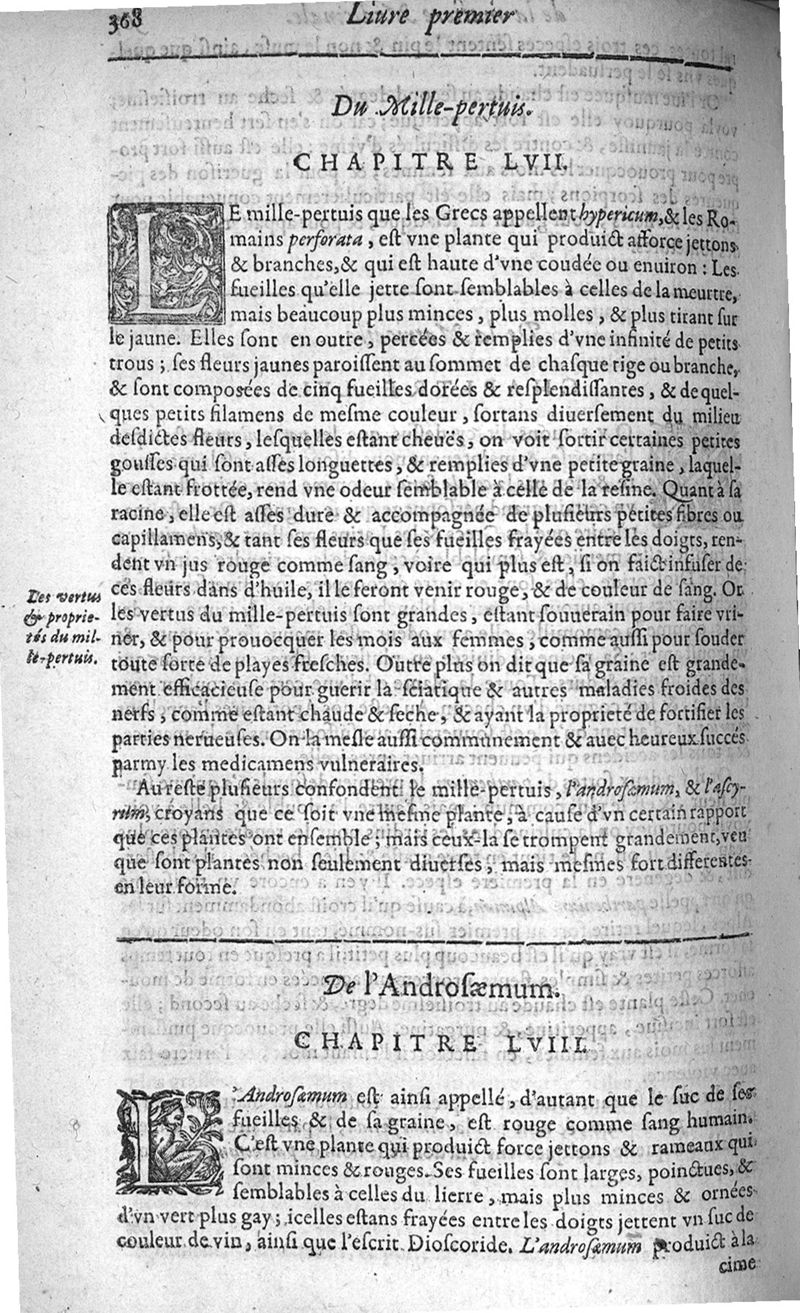 368
Liure premier
Du Mille-pertuis.
CHAPITRE LVII.
LE mille-pertuis que les Grecs appellent hypericum, & les Ro-
mains perforata, est vne plante qui produict afforce jettons
& branches, & qui est haute d'vne coudée ou enuiron : Les
fueilles qu'elle jette sont semblables à celles de la meurtre,
mais beaucoup plus minces, plus molles, & plus tirant sur
le jaune. Elles sont en outre, percées & remplies d'vne infinité de petits
trous ; ses fleurs jaunes paroissent au sommet de chasque tige ou branche,
& sont composées de cinq fueilles dorées & resplendissantes, & de quel-
ques petits filamens de mesme couleur, sortans diuersement du milieu
desdictes fleurs, lesquelles estant cheuës, on voit sortir certaines petites
gousses qui sont asses longuettes, & remplies d'vne petite graine, laquel-
le estant frottée, rend vne odeur semblable à celle de la resine. Quant à sa
racine, elle est asses dure & accompagnée de plusieurs petites fibres ou
capillamens, & tant ses fleurs que ses fueilles frayées entre les doigts, ren-
dent vn jus rouge comme sang, voire qui plus est, si on faict infuser de
ces fleurs dans d'huile, il le feront venir rouge, & de couleur de sang. Or
les vertus du mille-pertuis sont grandes, estant souuerain pour faire vri-
ner, & pour prouocquer les mois aux femmes, comme aussi pour souder
toute sorte de playes fresches. Outre plus on dit que sa graine est grande-
ment efficacieuse pour guerir la sciatique & autres maladies froides des
nerfs, comme estant chaude & seche, & ayant la proprieté de fortifier les
parties nerueuses. On la mesle aussi communement & auec heureux succés
parmy les medicamens vulneraires.
Au reste plusieurs confondent le mille-pertuis, l'androsæmum, & l'ascy-
rum, croyans que ce soit vne mesme plante, à cause d'vn certain rapport
que ces plantes ont ensemble ; mais ceux-la se trompent grandement, veu
que sont plantes non seulement diuerses, mais mesmes fort differentes
en leur forme.
Les vertus
& proprie-
tés du mil-
le-pertuis.
De l'Androsæmum.
CHAPITRE LVIII.
L'Androsæmum est ainsi appellé, d'autant que le suc de ses
fueilles & de sa graine, est rouge comme sang humain.
C'est vne plante qui produict force jettons & rameaux qui
sont minces & rouges. Ses fueilles sont larges, poinctues, &
semblables à celles du lierre, mais plus minces & ornées
d'vn vert plus gay ; icelles estans frayées entre les doigts jettent vn suc de
couleur de vin, ainsi que l'escrit Dioscoride. L'androsæmum produict à la
cime